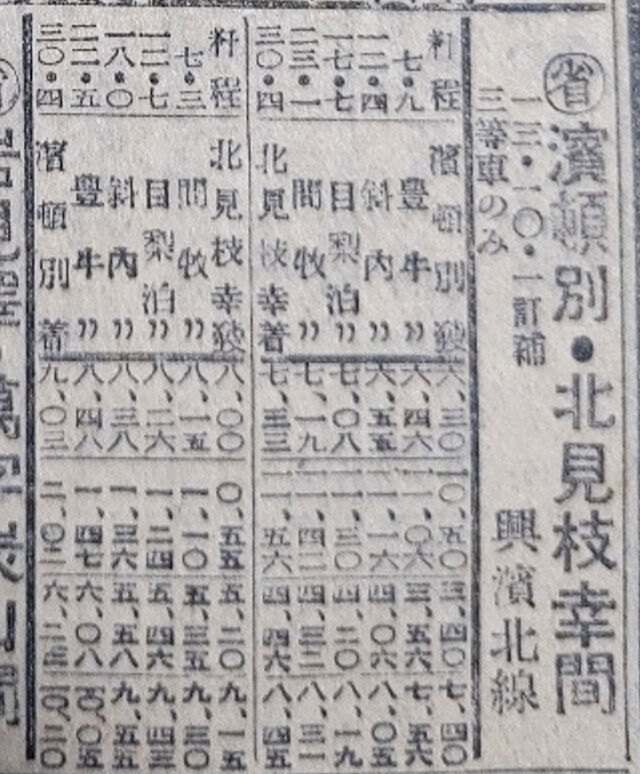 省 濱頓別・北見枝幸間
一三・一〇・一訂補
三等車のみ
興濱北線
粁程 濱頓別發 六、三〇 一〇、五〇 三、四〇 七、四〇
七・九 豊牛〃 六、四六 一一、〇六 三、五六 七、五六
一二・四 斜内〃 六、五五 一一、一六 四、〇六 八、〇五
一七・七 目梨泊〃 七、〇八 一一、三〇 四、二〇 八、一九
二三・一 問牧〃 七、一九 一一、四二 四、三二 八、三一
三〇・四 北見枝幸着 七、三三 一一、五六 四、四六 八、四五
粁程 北見枝幸發 八、〇〇 〇、五五 五、二〇 九、一五
七・三 問牧〃 八、一五 一、一〇 五、三五 九、三〇
一二・七 目梨泊〃 八、二六 一、二四 五、四六 九、四三
一八・〇 斜内〃 八、三八 一、三六 五、五八 九、五五
二二・五 豊牛〃 八、四八 一、四七 六、〇八 一〇、〇五
三〇・四 濱頓別着 九、〇三 二、〇二 六、二三 一〇、二〇